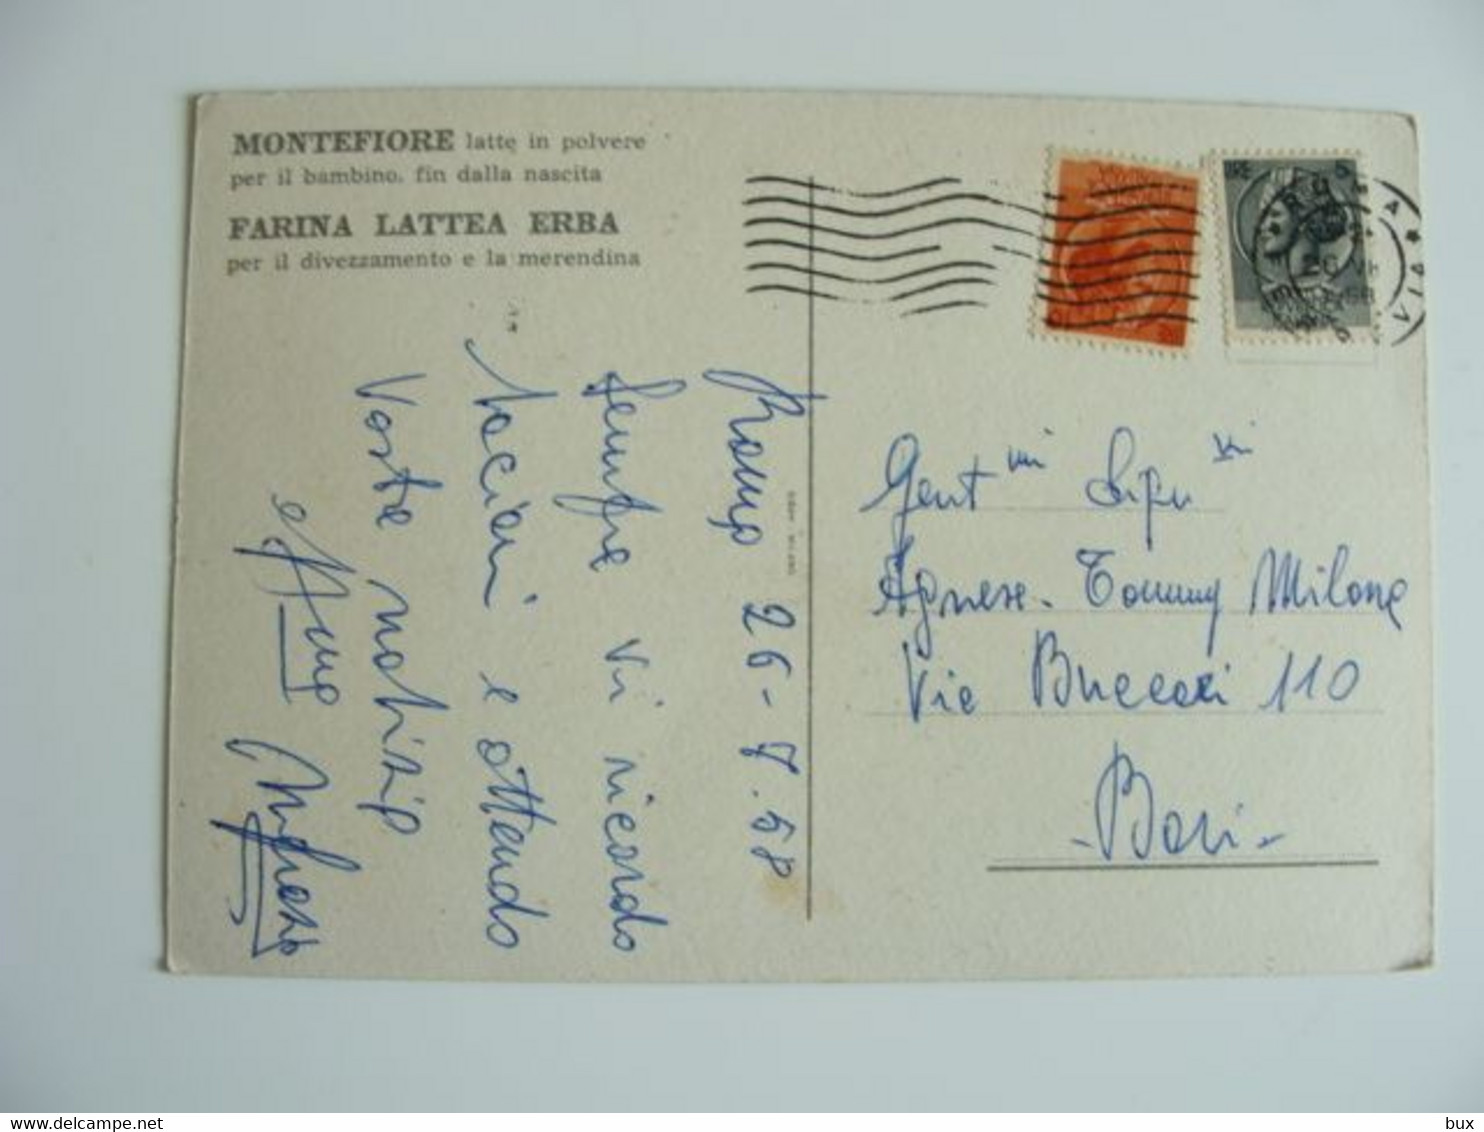 MONTEFIORE latte in polvere
per il bambino, fin dalla nascita
FARINA LATTEA ERBA
per il divezzamento e la merendina
Roma 26-7.58
Sempre vi ricordo
bacioni e attendo
Vostre notizie
Gent mi Sign vi
Agnese - Tommy Milone
Via Buccari 110
- Bari -
bux